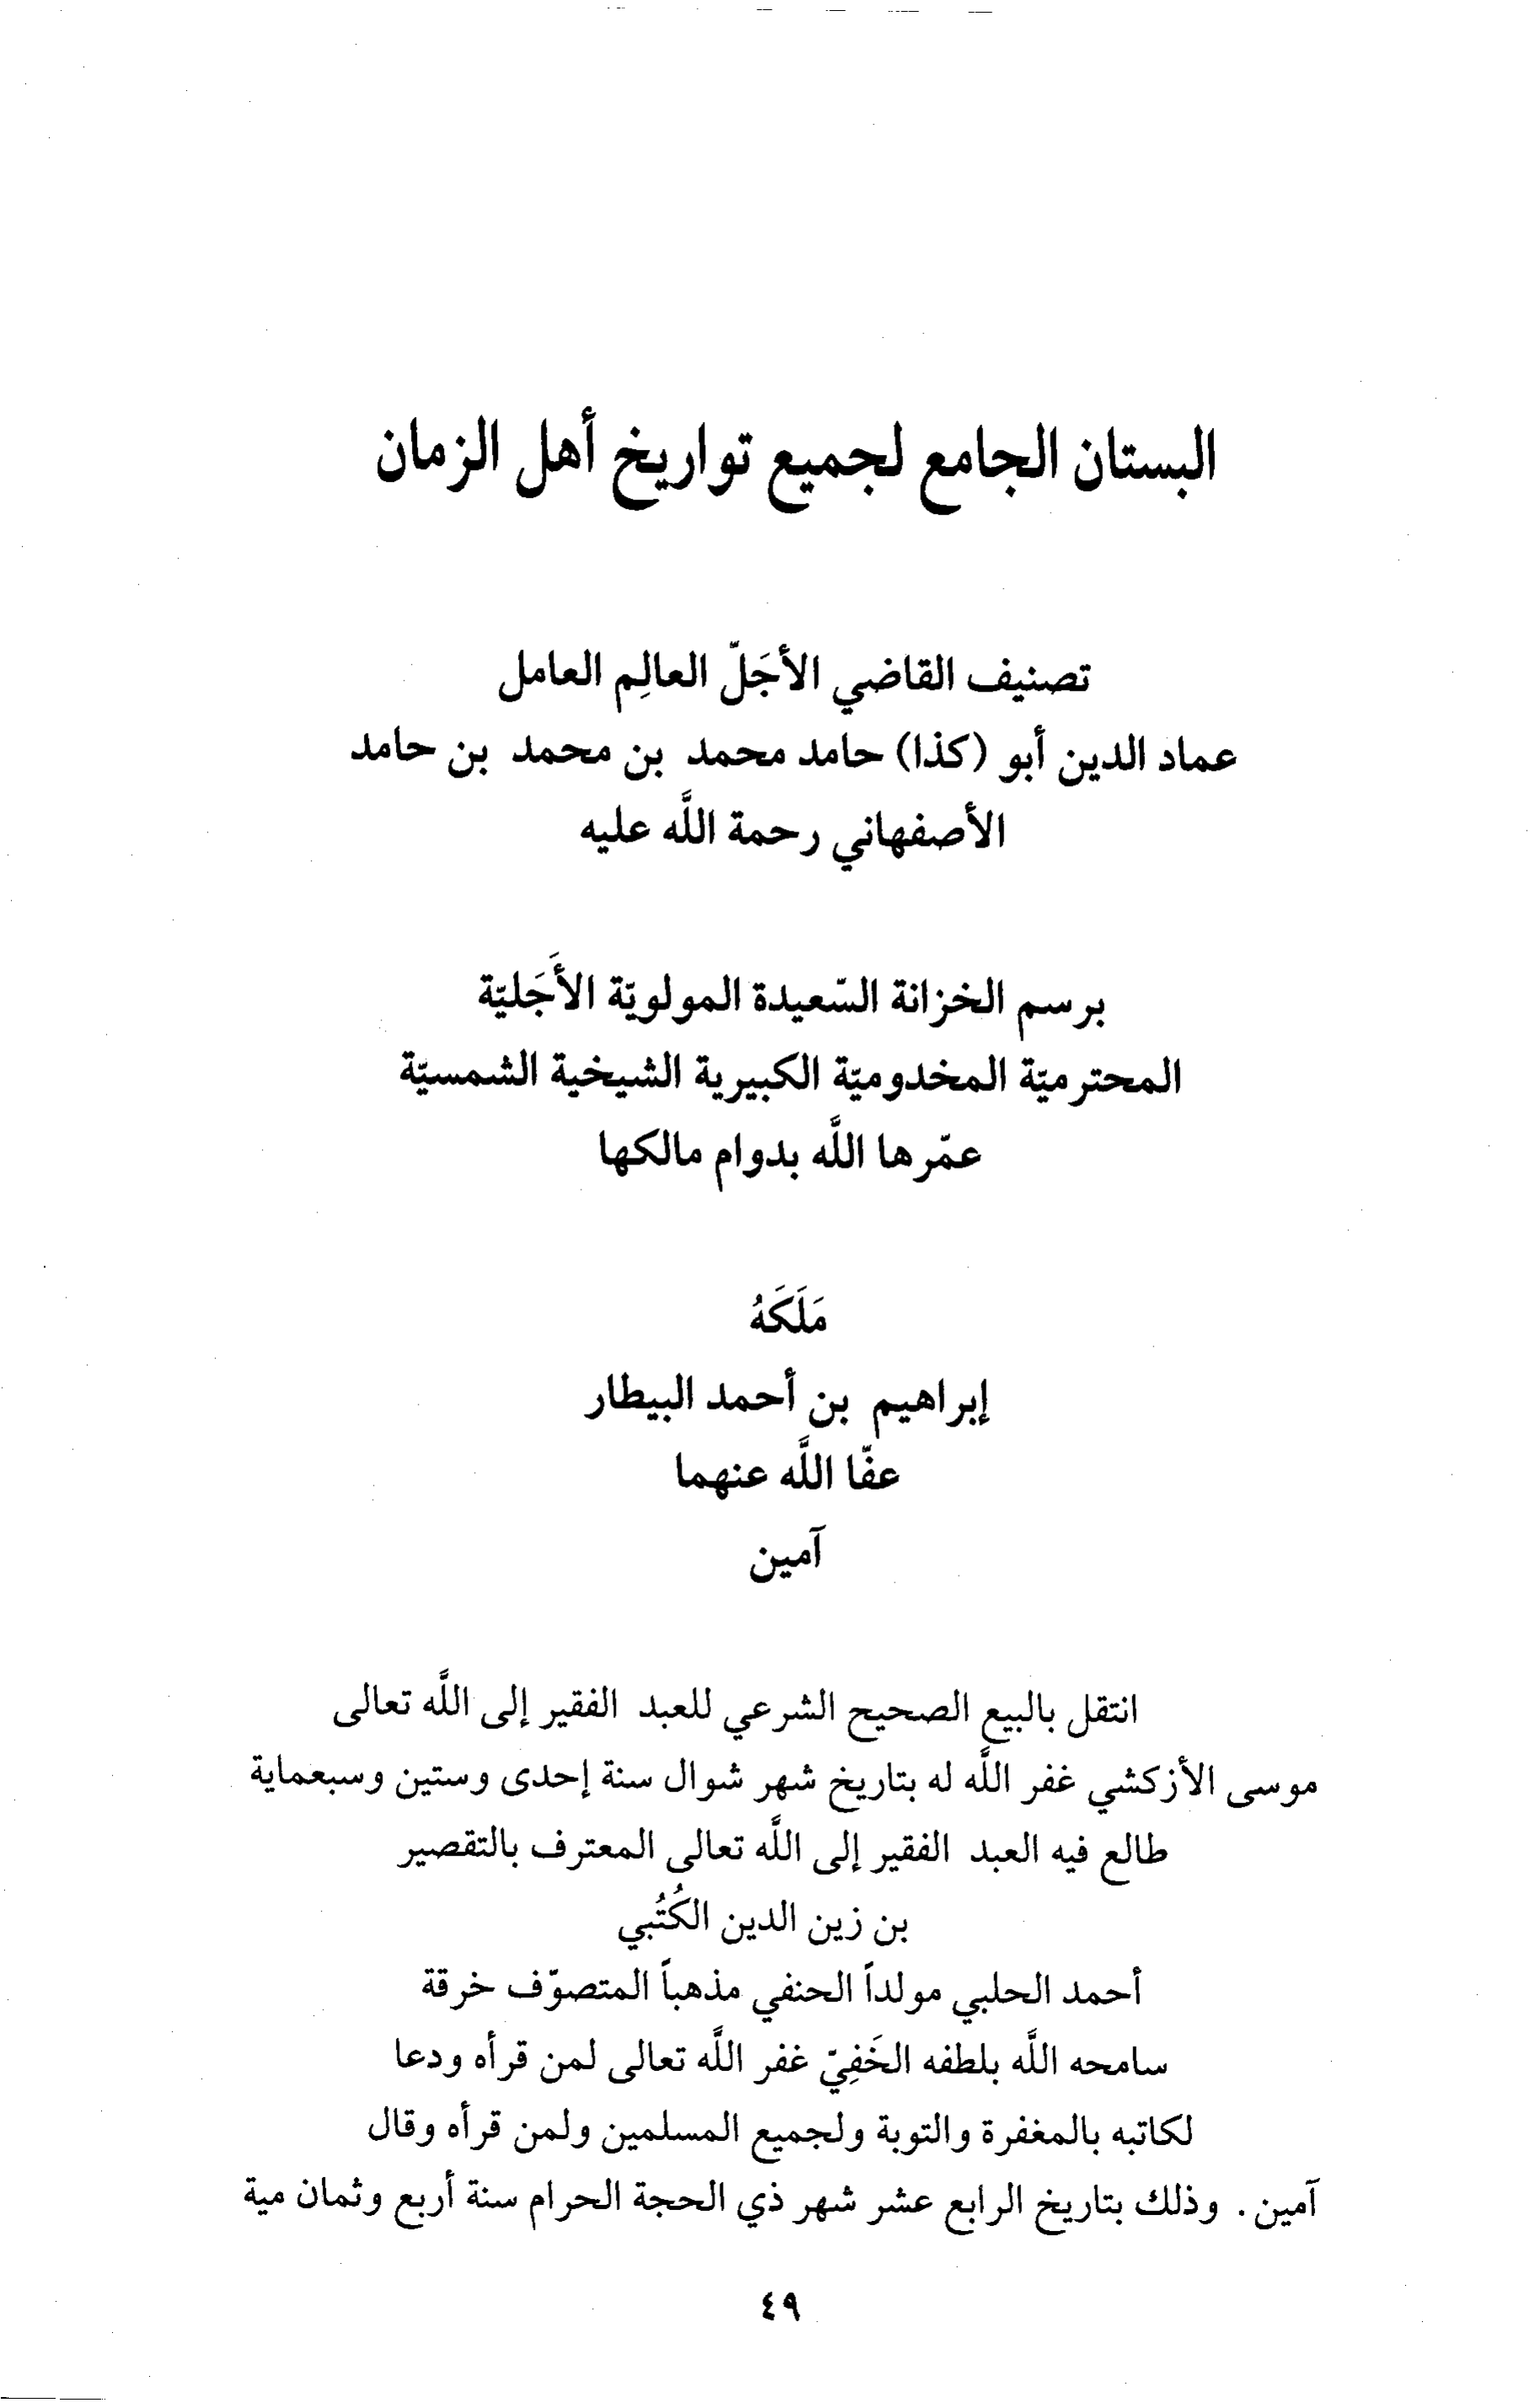 البستان الجامع لجميع تواريخ أهل الزمان
تصنيف القاضي الأجَلّ العالِم العامل
عماد الدين أبو (كذا) حامد محمد بن محمد بن حامد
الأصفهاني رحمة اللَّه عليه
برسم الخزانة السّعيدة المولويّة الأَجَليّة
المحترميّة المخدوميّة الكبيرية الشيخية الشمسيّة
عمّرها اللَّه بدوام مالكها
مَلَكَهُ
إبراهيم بن أحمد البيطار
عفّا اللَّه عنهما
آمين
انتقل بالبيع الصحيح الشرعي للعبد الفقير إلى اللَّه تعالى
موسى الأزكشي غفر اللَّه له بتاريخ شهر شوال سنة إحدى وستين وسبعماية
طالع فيه العبد الفقير إلى اللَّه تعالى المعترف بالتقصير
بن زين الدين الكُتُبي
أحمد الحلبي مولداً الحنفي مذهباً المتصوّف خرقة
سامحه اللَّه بلطفه الخَفِيّ غفر اللَّه تعالى لمن قرأه ودعا
لكاتبه بالمغفرة والتوبة ولجميع المسلمين ولمن قرأه وقال
آمين. وذلك بتاريخ الرابع عشر شهر ذي الحجة الحرام سنة أربع وثمان مية
٤٩